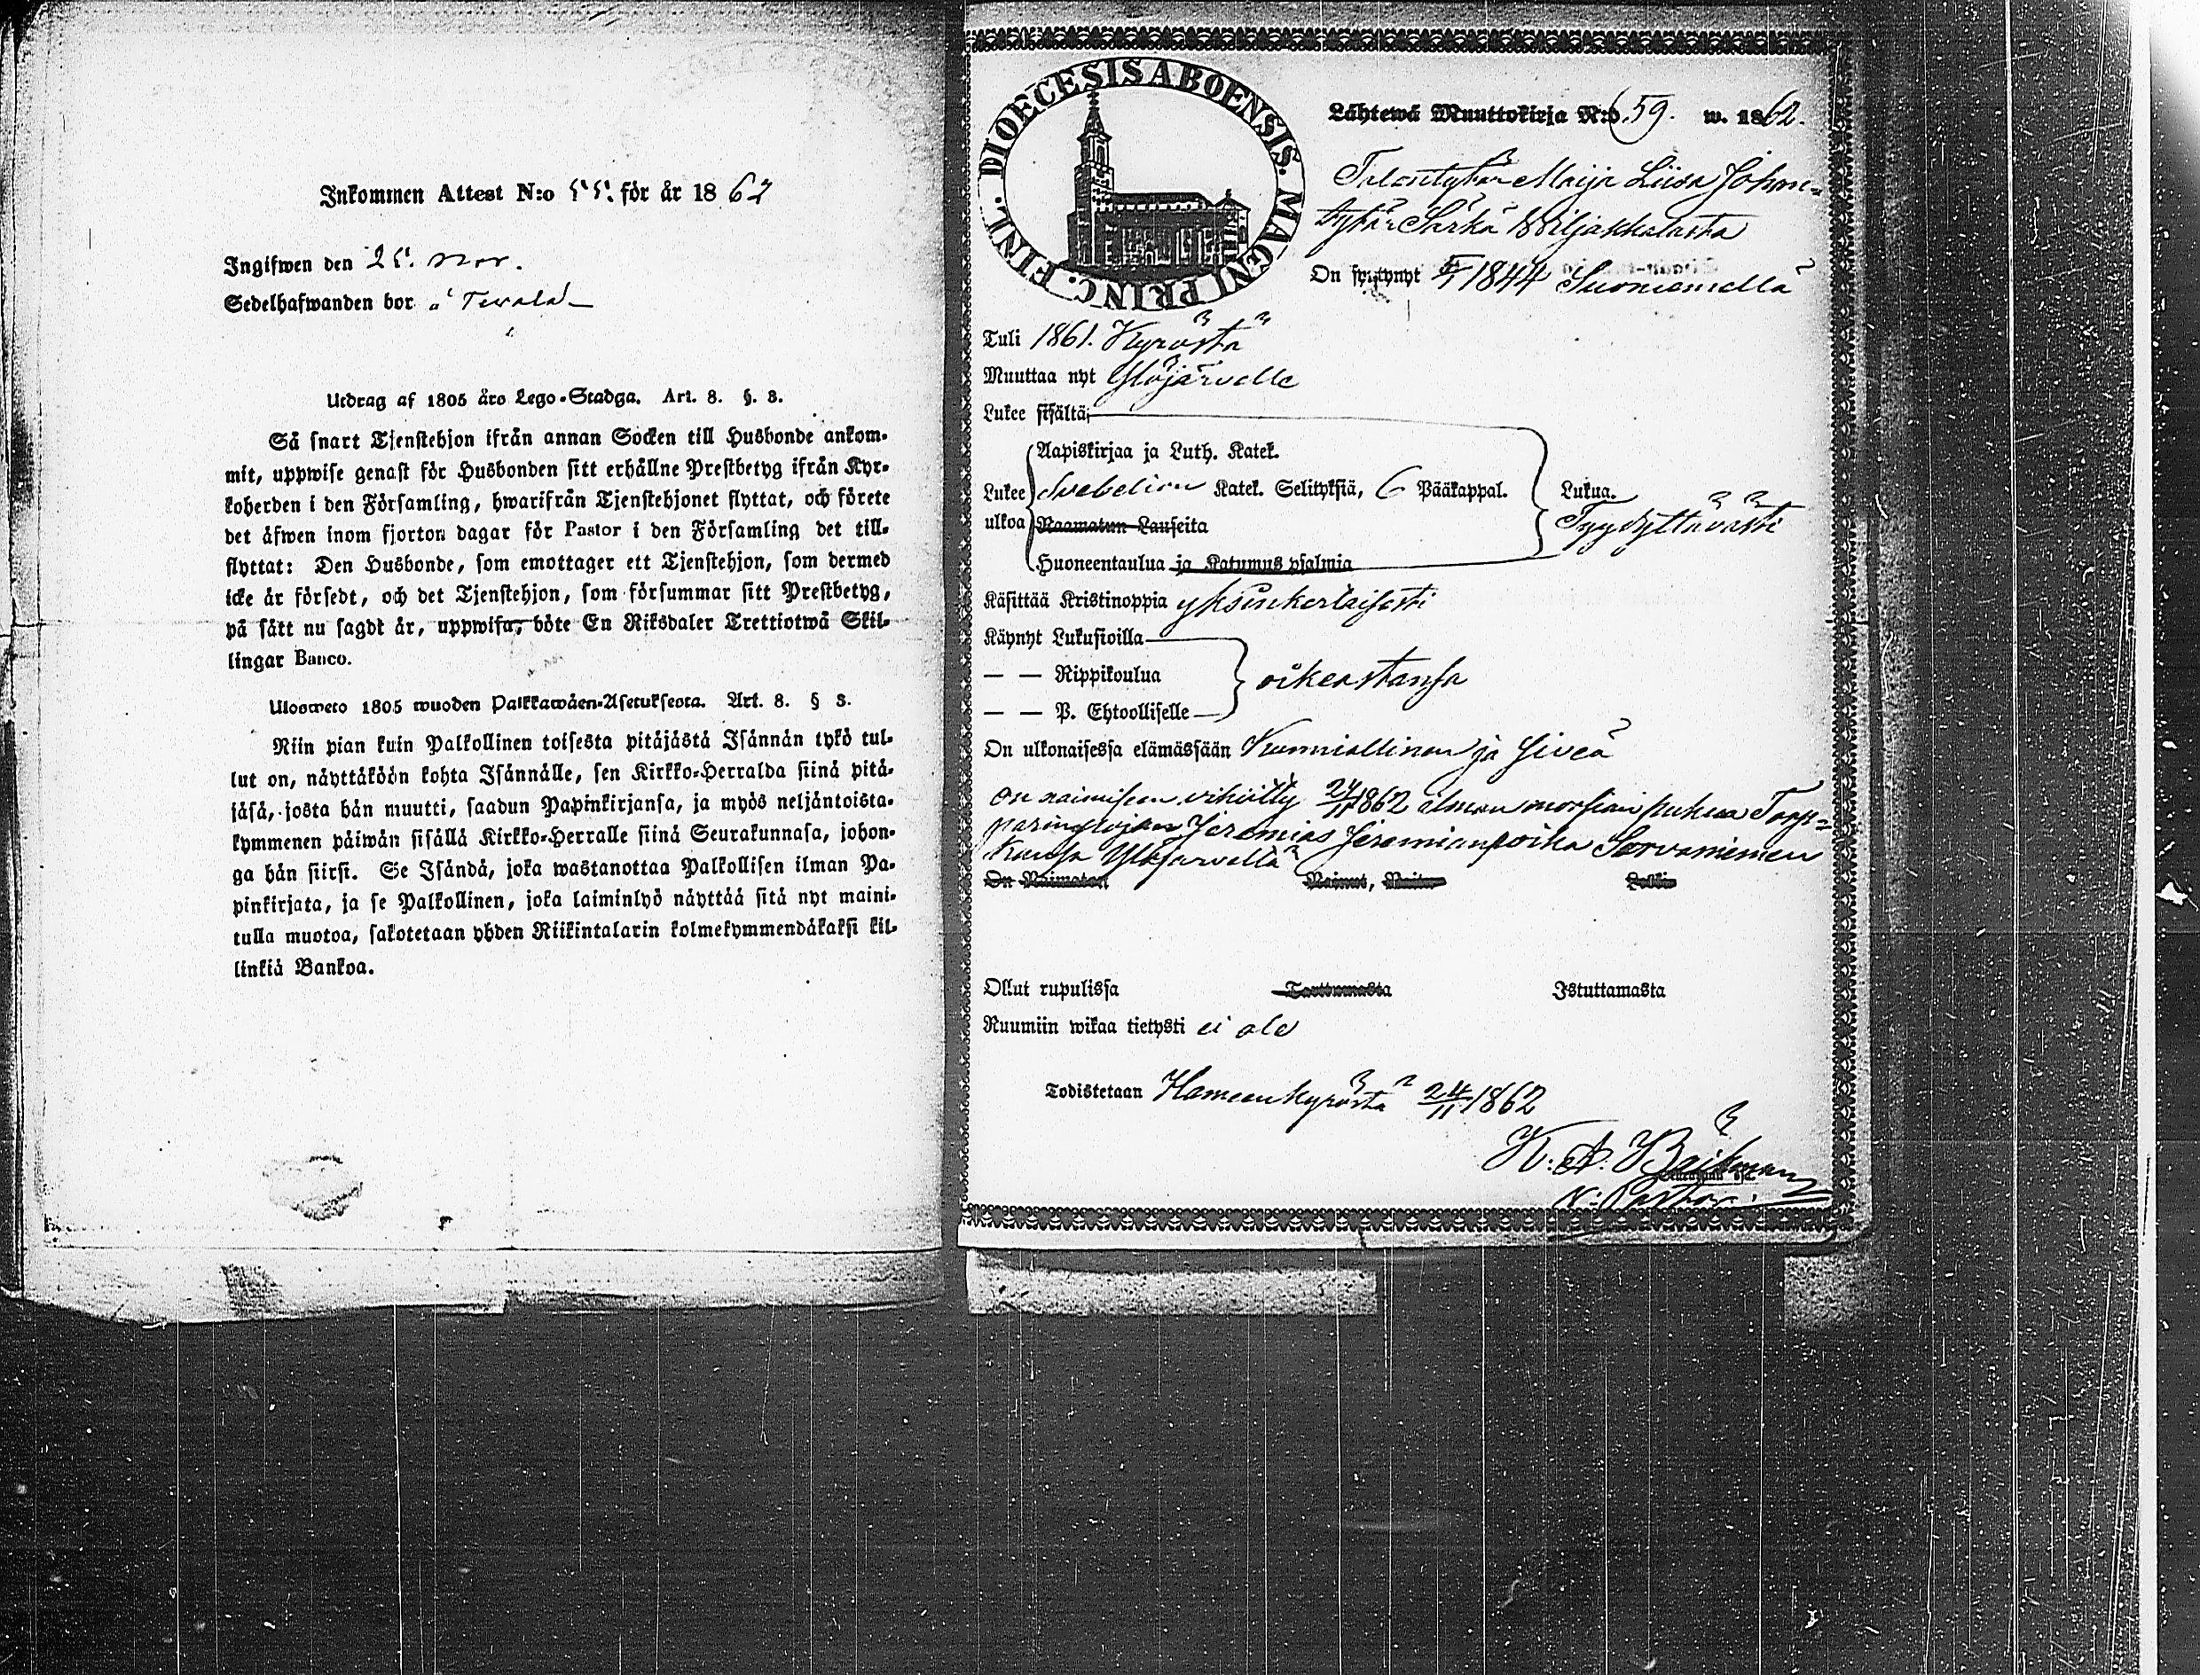 Inkommen Attest N:o 55. för år 1862
Ingifwen den 25. nov.
Sedelhafwanden bor å
Utdrag af 1805 års Lego-Stadga. Art. 8. §. 3.
Så snart Tjenstehjon ifrån annan Socken till Husbonde ankom-
mit, uppwise genast för Husbonden sitt erhållne Prestbetyg ifrån Kyr-
koherden i den Församling, hwarifrån Tjenstehjonet flyttat, och förete
det äfwen inom fjorton dagar för Pastor i den Församling det till-
flyttat: Den Husbonde, som emottager ett Tjenstehjon, som dermed
icke är försedt, och det Tjenstehjon, som försummar sitt Prestbetyg,
på sätt nu sagdt är, uppwisa, böte En Riksdaler Trettiotwå Skil-
lingar Banco.
Ulosweto 1805 wuoden Palkkawäen-Asetuksesta. Art. 8. § 3.
Niin pian kuin Palkollinen toisesta pitäjästä Isännän tykö tul-
lut on, näyttäköön kohta Isännälle, sen Kirkko-Herralda siinä pitä-
jäsä, josta hän muutti, saadun Papinkirjansa, ja myös neljäntoista-
kymmenen päiwän sisällä Kirkko-Herralle siinä Seurakunnasa, johon-
ga hän siirsi. Se Isändä, joka wastanottaa Palkollisen ilman Pa-
pinkirjata, ja se Palkollinen, joka laiminlyö näyttää sitä nyt maini-
tulla muotoa, sakotetaan yhden Riikintalarin kolmekymmendäkaksi kil-
linkiä Bankoa.
DIOECESIS ABOENSIS. MAGNI PRINC. FINL.
Lähtewä Muuttokirja N:o 59. w. 1862.
Talontytär Maija Liisa Johan-
tytär Särkä Wiljakkalasta
On syntynyt 1844 Suoniemellä
Tuli 1861. Kyröstä
Muuttaa nyt Ylöjärvelle
Lukee sisältä;
Aapiskirjaa ja Luth. Katek.
Lukee ulkoa Svebelion Katek. Selityksiä, 6 Pääkappal.
Raamatun Lauseita
Huoneentaulua ja Katumus psalmia
Lukua.
Tyydyttävästi
Käsittää Kristinoppia yksinkertaisesti
Käynyt Lukusioilla
— — Rippikoulua
— — P. Ehtoolliselle
oikeastansa
On ulkonaisessa elämässään Kunniallinen ja siveä
On naimiseen vihitty 24/11 1862 ilman morsian pukua Torp-
parin Jeremias Jeremianpoika Sorvaniemen
kansa Ylöjärvellä
On Naimaton Nainut, Leski
Ollut rupulissa Tarttumasta Istuttamasta
Ruumiin wikaa tietysti ei ole
Todistetaan Hämeenkyröstä 24/11 1862
K. A. Bäckman
V. Pastor.